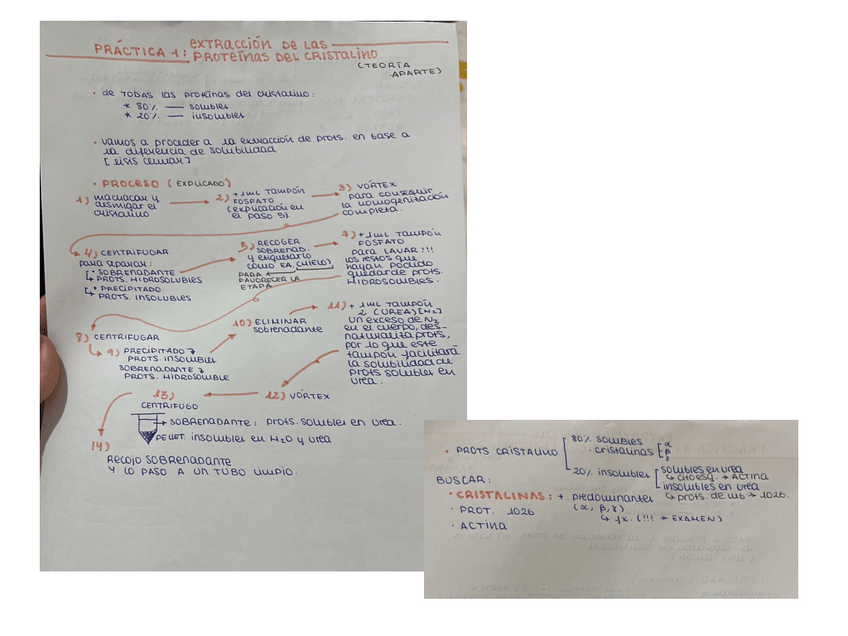 PRÁCTICA 1: EXTRACCIÓN DE LAS
PROTEÍNAS DEL CRISTALINO
(TEORÍA
APARTE)
• de TODAS las proteínas del cristalino:
* 80% — solubles
* 20% — insolubles
• Vamos a proceder a la extracción de prots. en base a
la diferencia de solubilidad
[lisis celular]
• PROCESO (EXPLICADO)
1) machacar y
desmigar el
cristalino
2) + 1mL TAMPÓN
FOSFATO
(explicación en
el paso 5)
3) VÓRTEX
para conseguir
la homogenización
completa.
4) CENTRIFUGAR
para separar:
• SOBRENADANTE
PROTS. HIDROSOLUBLES
• PRECIPITADO
PROTS. INSOLUBLES
5) RECOGER
SOBRENAD.
y etiquetarlo
como EA. (HIELO).
PARA
FAVORECER LA
ETAPA
7) + 1mL TAMPÓN
FOSFATO
para LAVAR!!!
los restos que
hayan podido
quedar de prots.
HIDROSOLUBLES.
8) CENTRIFUGAR
9) PRECIPITADO →
PROTS. INSOLUBLES
SOBRENADANTE →
PROTS. HIDROSOLUBLE
10) ELIMINAR
sobrenadante
11) + 1mL TAMPÓN
2 (UREA) [N₂]
un exceso de N₂
en el cuerpo, des-
naturaliza prots.
por lo que este
tampón facilitará
la solubilidad de
prots solubles en
urea.
12) VÓRTEX
13)
CENTRIFUGO
→ SOBRENADANTE: prots. solubles en urea.
PELLET: insolubles en H₂O y urea
14)
Recojo SOBRENADANTE
Y LO PASO A UN TUBO LIMPIO.
• PROTS CRISTALINO
80% solubles
· cristalinas [α
β
γ
20% insolubles
solubles en urea
↳ citoesq. → ACTINA
insolubles en urea
↳ prots. de mb → 1026.
BUSCAR:
• CRISTALINAS: + predominantes
(α, β, γ)
↳ fx. (!!! → EXAMEN)
• PROT. 1026
• ACTINA